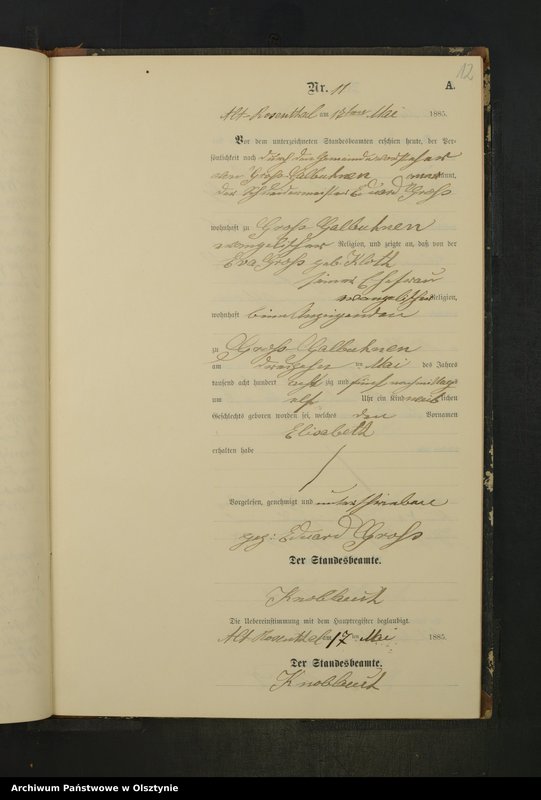 12
Nr. 11 A.
Alt-Rosenthal am Mai 1885.
Vor dem unterzeichneten Standesbeamten erschien heute, der Per-
sönlichkeit nach durch den Gemeindevorsteher
Groß-Galbuhnen kannt,
der Schneidermeister Eduard Groß
wohnhaft zu Groß Galbuhnen
evangelischer Religion, und zeigte an, daß von der
Eva Groß geb. Kloth
seiner Ehefrau
evangelischer Religion,
wohnhaft beim Anzeigenden
zu Groß Galbuhnen
am dreizehn ten Mai des Jahres
tausend acht hundert acht zig und fünf nachmittags
um elf Uhr ein Kind weiblichen
Geschlechts geboren worden sei, welches den Vornamen
Elisabeth
erhalten habe
Vorgelesen, genehmigt und unterschrieben
gez: Eduard Groß
Der Standesbeamte.
Knoblauch
Die Uebereinstimmung mit dem Hauptregister beglaubigt.
Alt-Rosenthal am 17 ten Mai 1885.
Der Standesbeamte.
Knoblauch
Archiwum Państwowe w Olsztynie